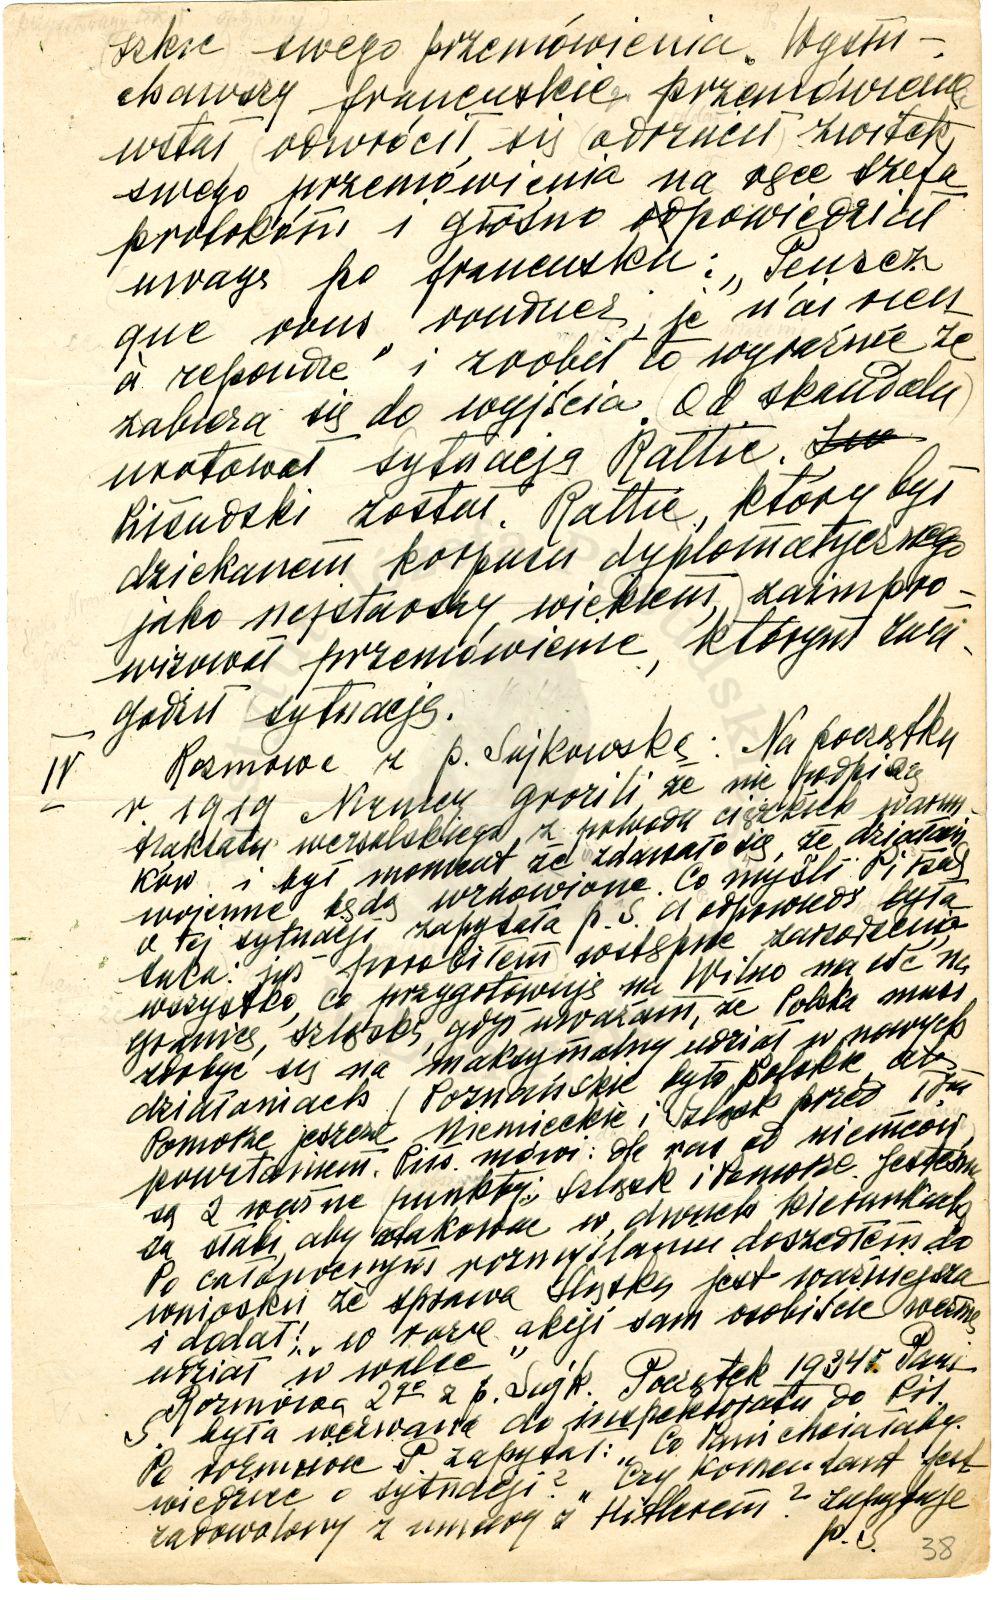 szkic swego przemówienia. Wysłu-
chawszy francuskiego przemówienia
wstał (odwrócił się) odrzucił zwitek
swego przemówienia na ręce szefa
protokółu i głośno odpowiedział
uwagę po francusku: „Pensez
que vous voudrez, je n'ai rien
à repondre" i zrobił to wyraźnie że
zabiera się do wyjścia. (Od skandalu)
uratował sytuację Rattie.
Piłsudski został. Rattie, który był
dziekanem korpusu dyplomatycznego
jako najstarszy wiekiem, zaimpro-
wizował przemówienie, którym zała-
godził sytuację.
IV Rozmowa z p. Sujkowską: Na początku
r. 1919 Niemcy grozili że nie podpiszą
traktatu wersalskiego z powodu ciężkich warun-
ków i był moment że zdawało się, że działania
wojenne będą wznowione. Co myśli Piłsudski
o tej sytuacji zapytała p. S. a odpowiedź była
taka: już porobiłem wstępne zarządzenia
wszystko, co przygotowuję na Wilno na
granicę szląską, gdyż uważam, że Polska musi
zdobyć się na maksymalny udział w nowych
działaniach (Poznańskie było polskie, ale
Pomorze jeszcze niemieckie i Szląsk przed
powstaniem. Pils. mówi: dla nas od niemców
są 2 ważne punkty: Szląsk i Pomorze. Jesteśmy
za słabi, aby atakować w dwuch kierunkach
Po całonocnym rozmyślaniu doszedłem do
wniosku że sprawa Śląska jest ważniejsza
i dodał: „w razie akcji sam osobiście wezmę
udział w walce"
Rozmowa 2ga z p. Sujk. Początek 1934 r. Pani
S. była wezwana do inspektoratu do Pił.
Po rozmowie P. zapytał: „Co Pani chciałaby
wiedzieć o sytuacji? „Czy Komendant jest
zadowolony z umowy z Hitlerem? zapytuje
p. S.
38